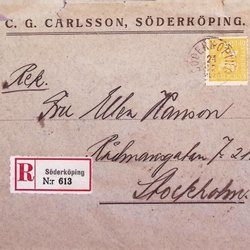 C. G. CARLSSON, SÖDERKÖPING.
SÖDERKÖPING
21
Rek.
Fru Ellen Hanson
Rådmansgatan 7
Stockholm.
R
Söderköping
N:r 613